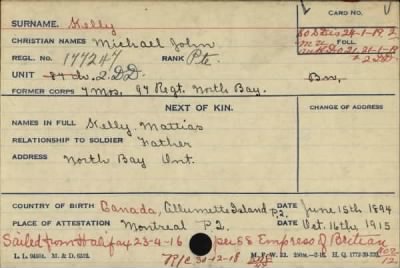 CARD NO.
SURNAME. Kelly
CHRISTIAN NAMES Michael John
REGL. NO. 177247 RANK Pte.
FOLL.
UNIT 87th. 2. DD.
FORMER CORPS 7 Mos. 97 Regt. North Bay.
NEXT OF KIN. CHANGE OF ADDRESS
NAMES IN FULL Kelly. Mattias
RELATIONSHIP TO SOLDIER Father
ADDRESS North Bay Ont.
COUNTRY OF BIRTH Canada, Allumette Island P.2. DATE June 15th 1894
PLACE OF ATTESTATION Montreal P.2. DATE Oct. 16th 1915
Sailed from Halifax 23-4-16 per SS Empress of Britian
L. L. M. & D.
M. F. W. 22